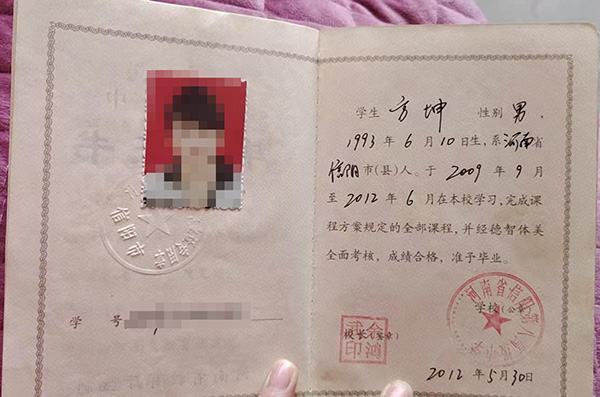 信阳市
学号
学生 方坤 性别 男,
1993年6月10日生,系河南省
信阳市(县)人。于2009年9月
至2012年6月在本校学习,完成课
程方案规定的全部课程,并经德智体美
全面考核,成绩合格,准予毕业。
学校(公章)
校长(签章)
2012年5月30日